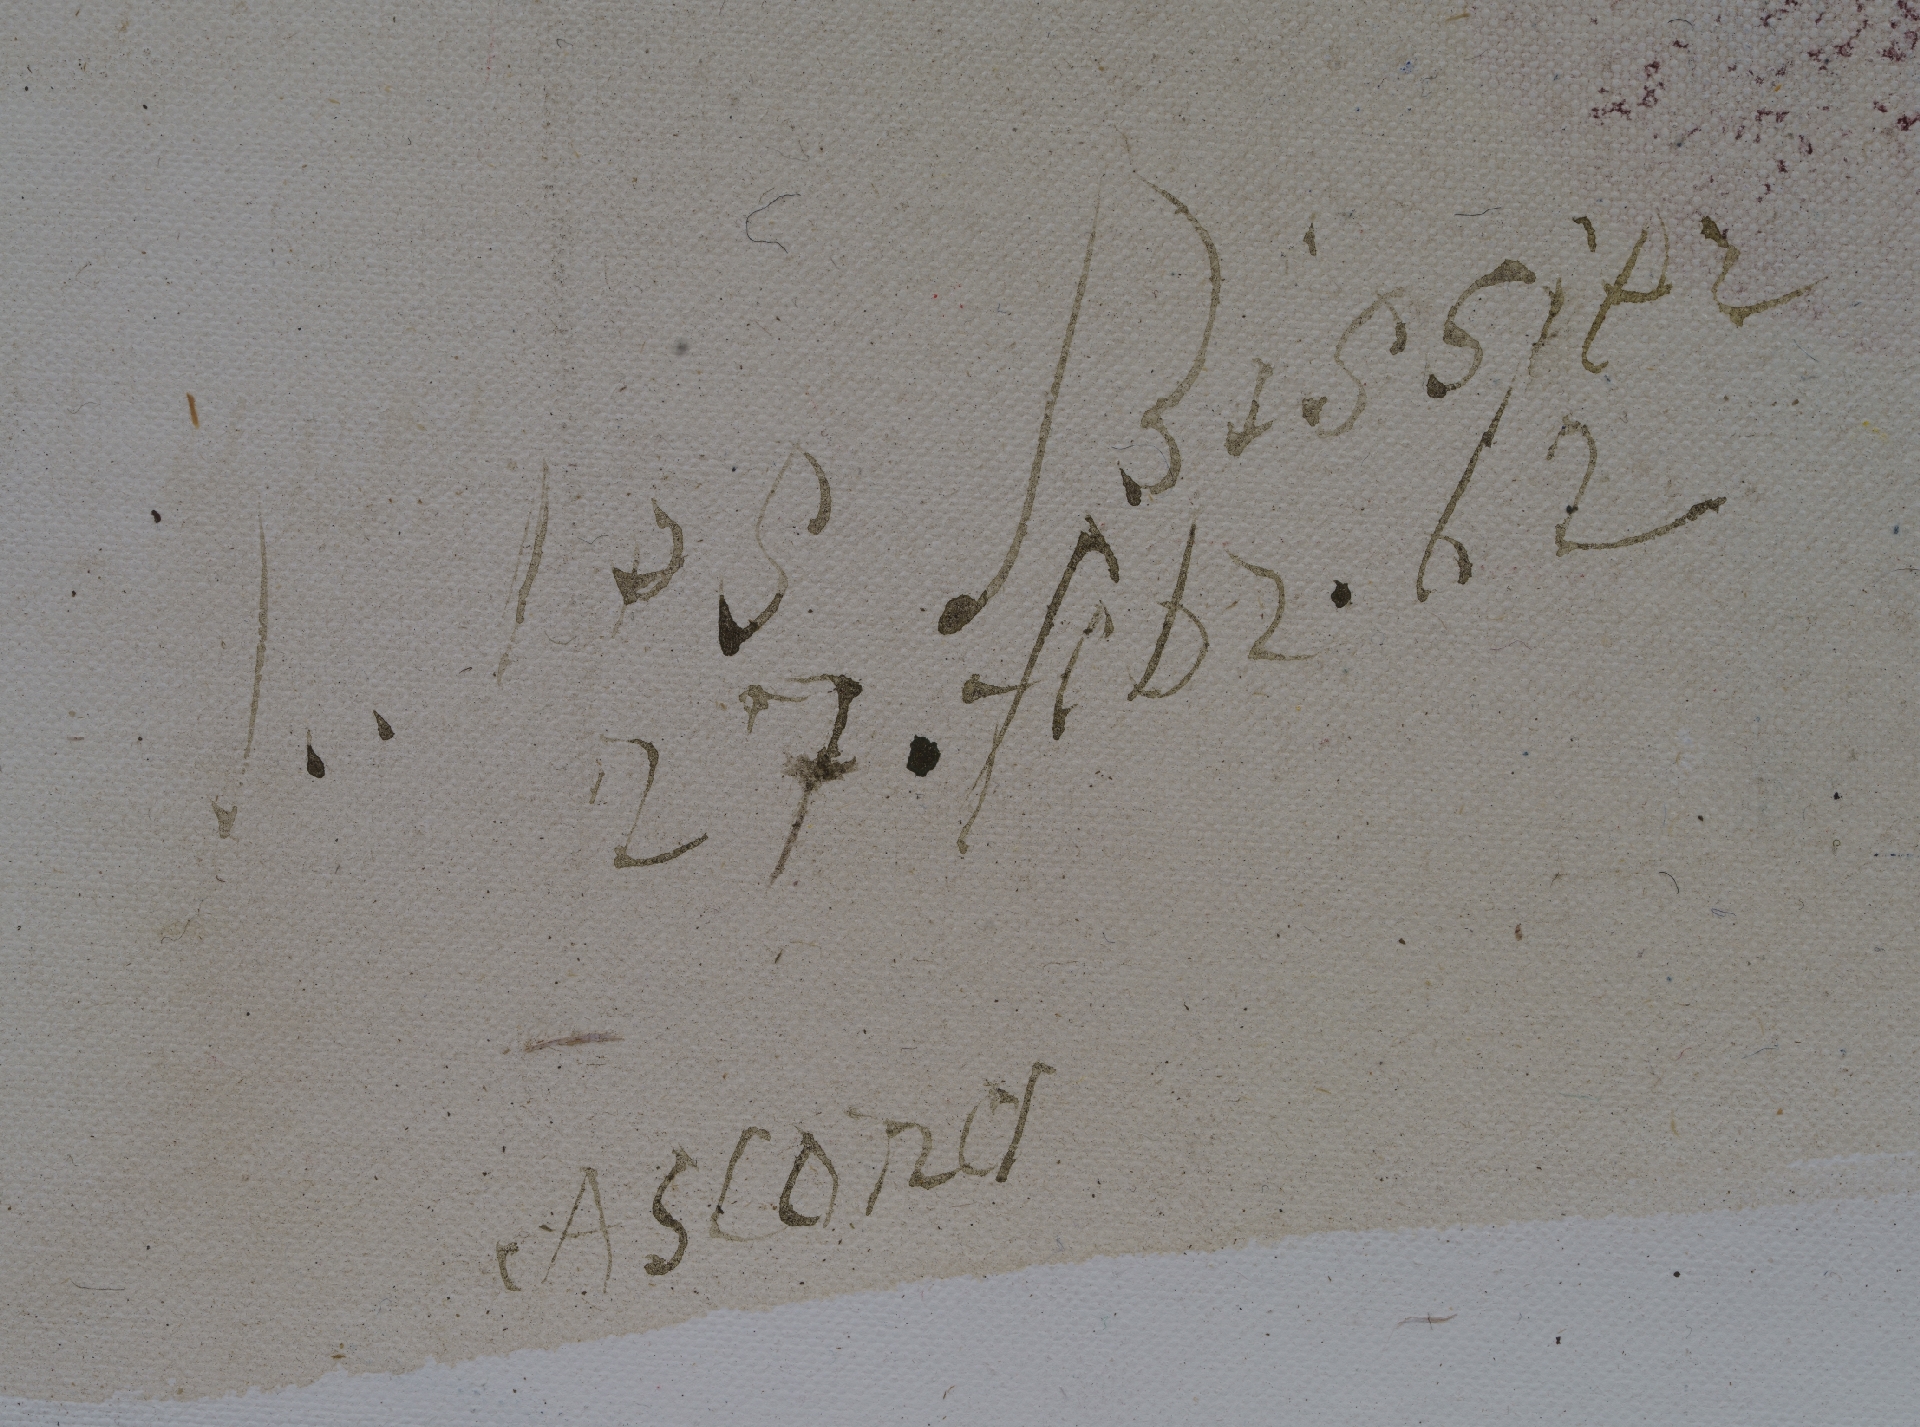 Jules Bissier
27. febr. 62
Ascona